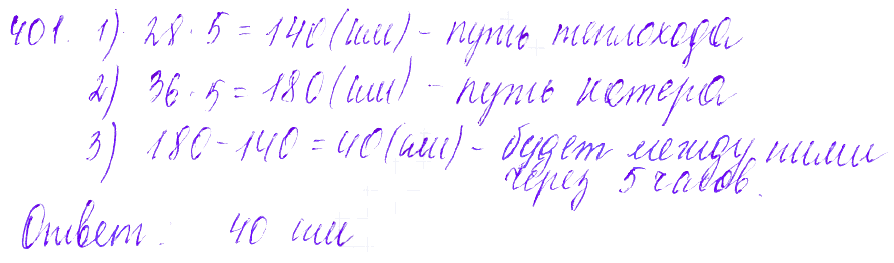 401. 1) 28 · 5 = 140 (км) - путь теплохода
2) 36 · 5 = 180 (км) - путь катера
3) 180 - 140 = 40 (км) - будет между ними
через 5 часов.
Ответ: 40 км